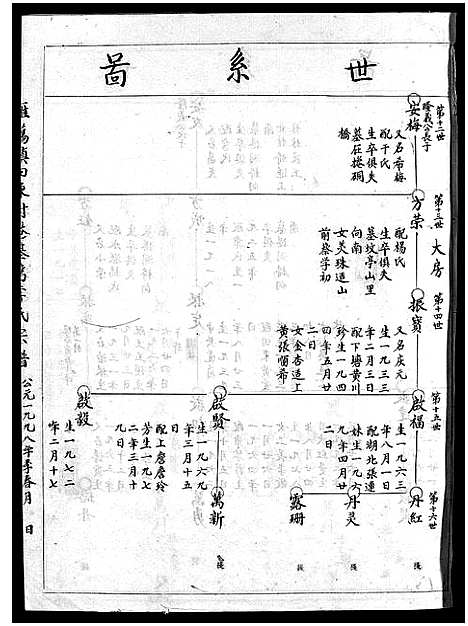 世系啚
第十二世
隆義公長子
安梅
又名希梅
配干氏
生卒俱失
墓在捲硐
橋
第十三世
大房
方荣
配楊氏
生卒俱失
墓坟亭山里
向南
女美珠適山
前蔡学初
第十四世
振寶
又名庆元
生一九三三
年二月三日
配下塘黄川
珍生一九四
四年五月廿
二日
女金杏適上
黄張順希
第十五世
啟福
生一九六三
年八月一日
配湖北張連
妹生一九六
九年四月廿
二日
啟賢
生一九六九
年三月十五
日
配上詹詹玲
芳生一九七
二年三月十
九日
啟毅
生一九七二
年二月十七
第十六世
丹紅
丹灵
露珊
萬新
宗譜
公元一九九八年季春月 日